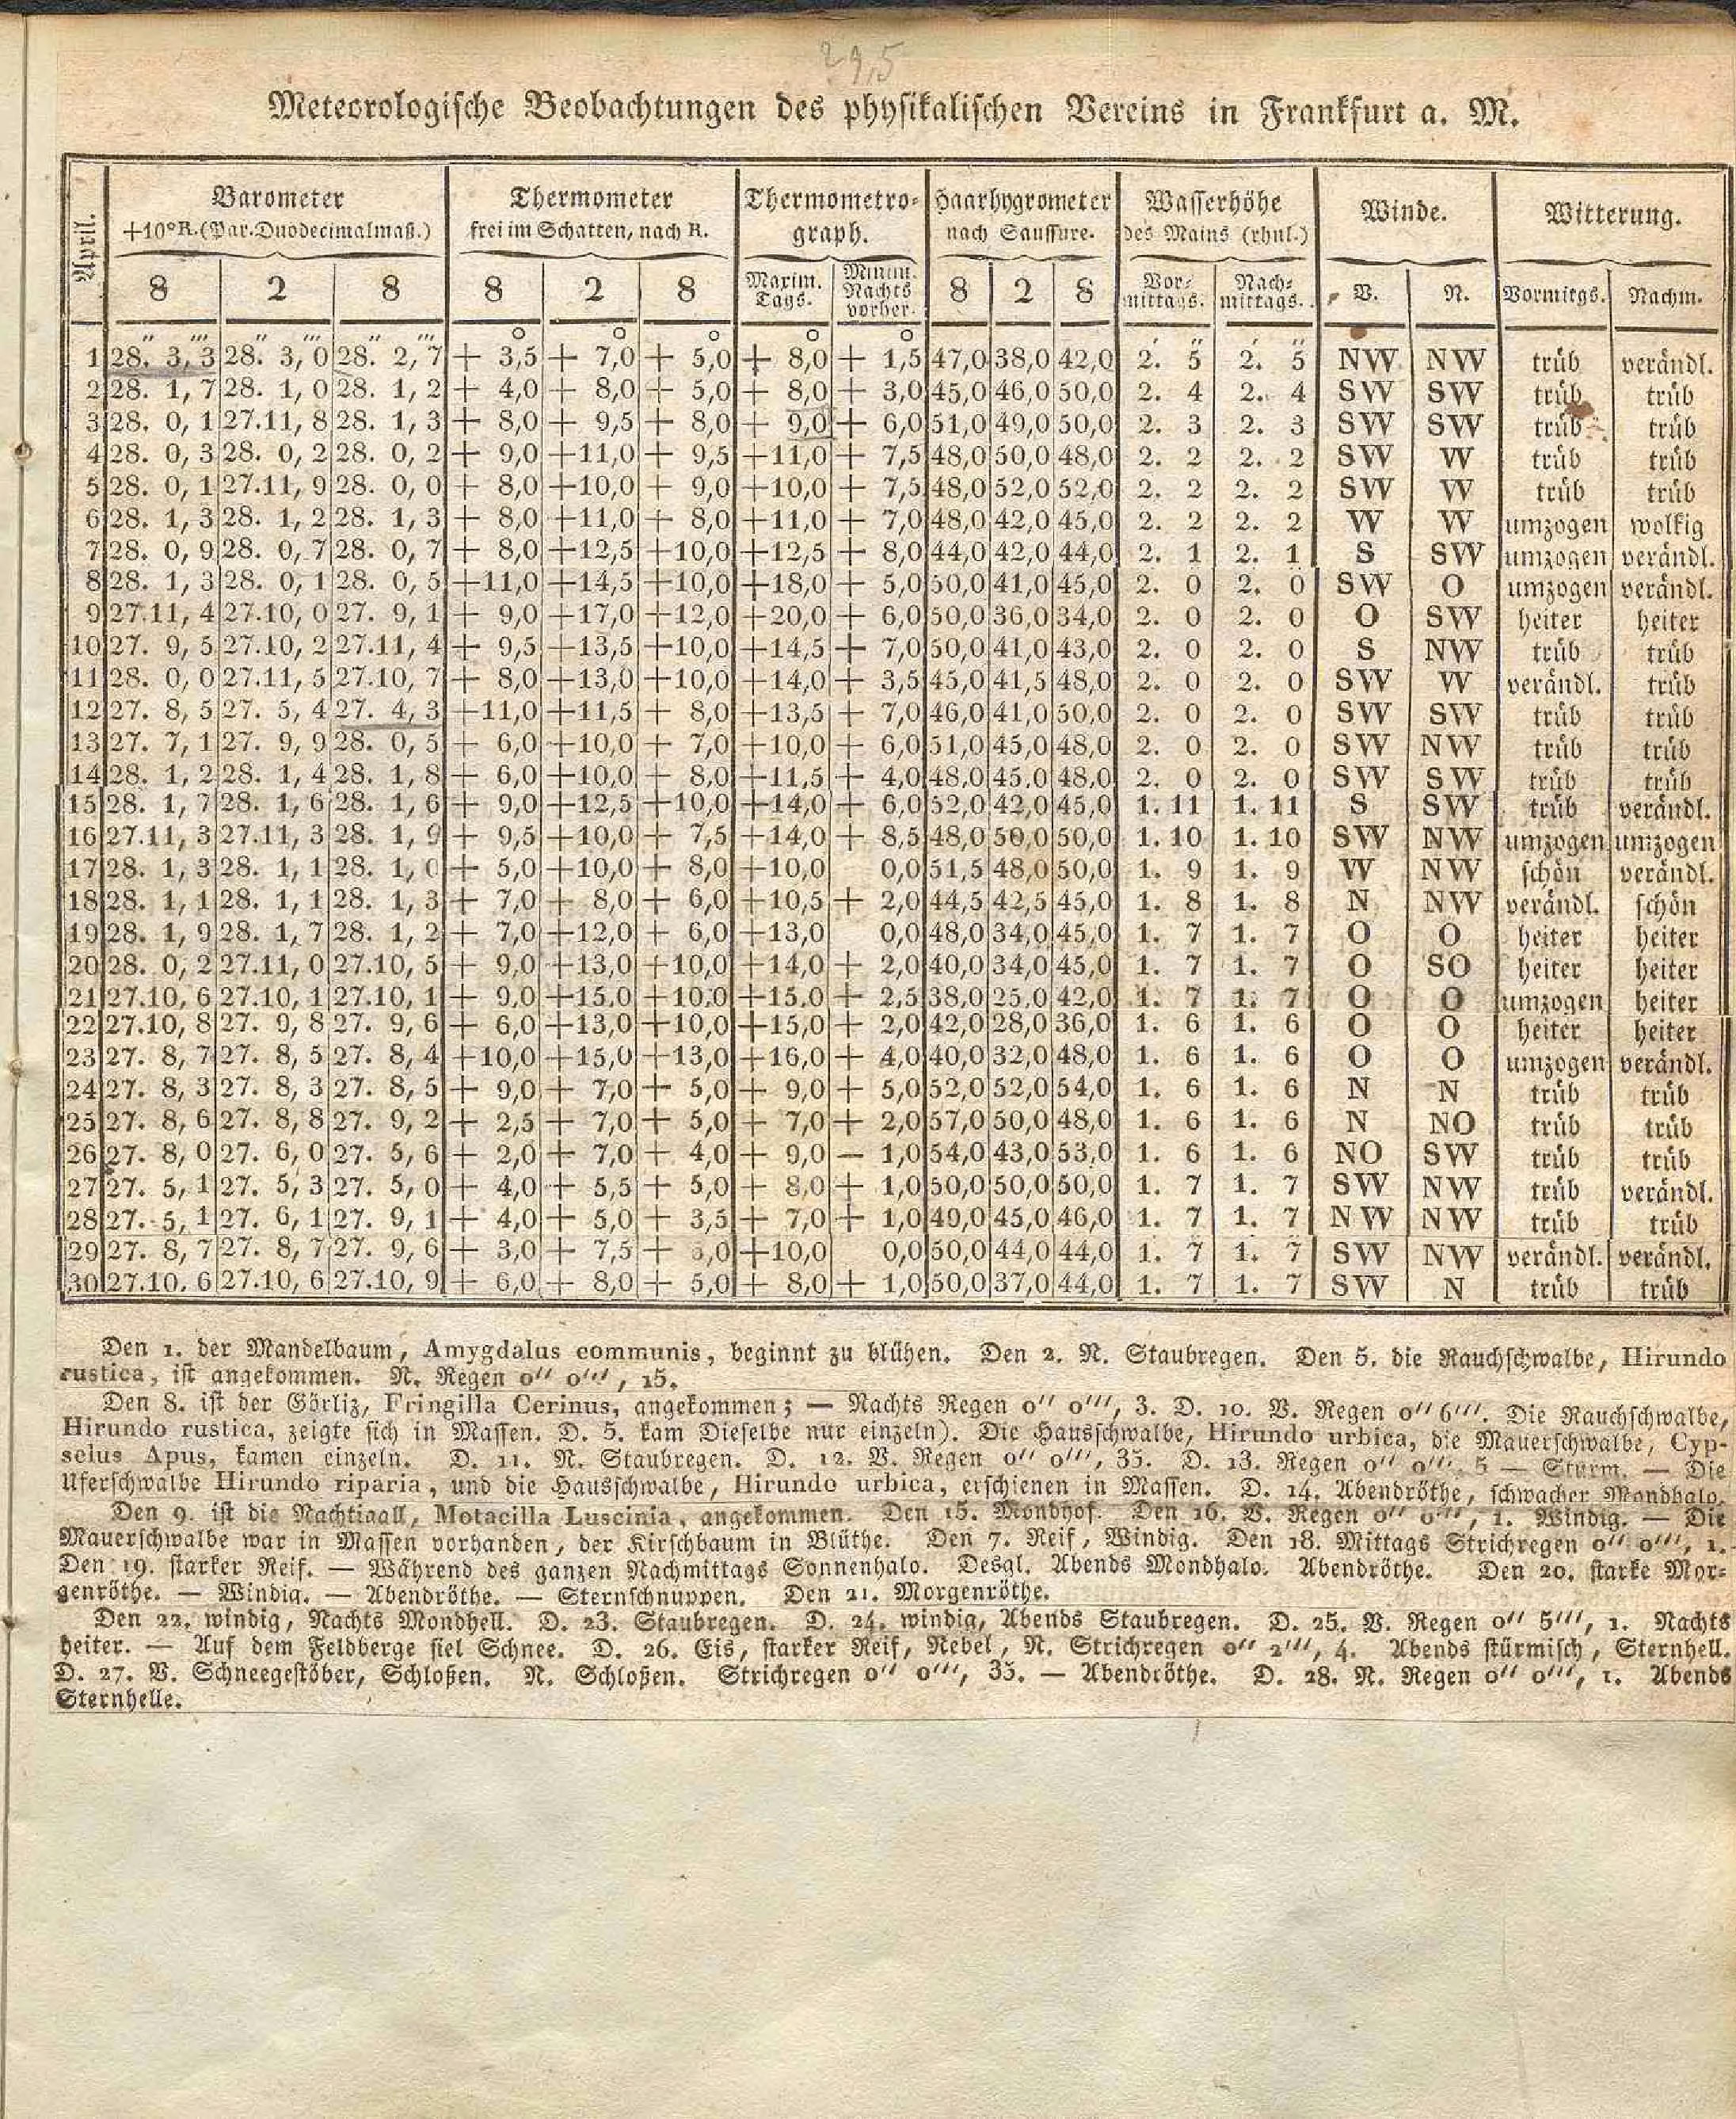 29,5
Meteorologische Beobachtungen des physikalischen Vereins in Frankfurt a. M.
April. Barometer Thermometer Thermometro- Haarhygrometer Wasserhöhe Winde. Witterung.
+10°R.(Par.Duodecimalmaß.) frei im Schatten, nach R. graph. nach Saussure. des Mains (rhnl.)
8 2 8 8 2 8 Maxim. Tags. Minim. Nachts vorher. 8 2 8 Vor- mittags. Nach- mittags. V. N. Vormitgs. Nachm.
1 28. 3, 3 28. 3, 0 28. 2, 7 + 3,5 + 7,0 + 5,0 + 8,0 + 1,5 47,0 38,0 42,0 2. 5 2. 5 NW NW trüb verändl.
2 28. 1, 7 28. 1, 0 28. 1, 2 + 4,0 + 8,0 + 5,0 + 8,0 + 3,0 45,0 46,0 50,0 2. 4 2. 4 SW SW trüb trüb
3 28. 0, 1 27.11, 8 28. 1, 3 + 8,0 + 9,5 + 8,0 + 9,0 + 6,0 51,0 49,0 50,0 2. 3 2. 3 SW SW trüb trüb
4 28. 0, 3 28. 0, 2 28. 0, 2 + 9,0 +11,0 + 9,5 +11,0 + 7,5 48,0 50,0 48,0 2. 2 2. 2 SW W trüb trüb
5 28. 0, 1 27.11, 9 28. 0, 0 + 8,0 +10,0 + 9,0 +10,0 + 7,5 48,0 52,0 52,0 2. 2 2. 2 SW W trüb trüb
6 28. 1, 3 28. 1, 2 28. 1, 3 + 8,0 +11,0 + 8,0 +11,0 + 7,0 48,0 42,0 45,0 2. 2 2. 2 W W umzogen wolkig
7 28. 0, 9 28. 0, 7 28. 0, 7 + 8,0 +12,5 +10,0 +12,5 + 8,0 44,0 42,0 44,0 2. 1 2. 1 S SW umzogen verändl.
8 28. 1, 3 28. 0, 1 28. 0, 5 +11,0 +14,5 +10,0 +18,0 + 5,0 50,0 41,0 45,0 2. 0 2. 0 SW O umzogen verändl.
9 27.11, 4 27.10, 0 27. 9, 1 + 9,0 +17,0 +12,0 +20,0 + 6,0 50,0 36,0 34,0 2. 0 2. 0 O SW heiter heiter
10 27. 9, 5 27.10, 2 27.11, 4 + 9,5 +13,5 +10,0 +14,5 + 7,0 50,0 41,0 43,0 2. 0 2. 0 S NW trüb trüb
11 28. 0, 0 27.11, 5 27.10, 7 + 8,0 +13,0 +10,0 +14,0 + 3,5 45,0 41,5 48,0 2. 0 2. 0 SW W verändl. trüb
12 27. 8, 5 27. 5, 4 27. 4, 3 +11,0 +11,5 + 8,0 +13,5 + 7,0 46,0 41,0 50,0 2. 0 2. 0 SW SW trüb trüb
13 27. 7, 1 27. 9, 9 28. 0, 5 + 6,0 +10,0 + 7,0 +10,0 + 6,0 51,0 45,0 48,0 2. 0 2. 0 SW NW trüb trüb
14 28. 1, 2 28. 1, 4 28. 1, 8 + 6,0 +10,0 + 8,0 +11,5 + 4,0 48,0 45,0 48,0 2. 0 2. 0 SW SW trüb trüb
15 28. 1, 7 28. 1, 6 28. 1, 6 + 9,0 +12,5 +10,0 +14,0 + 6,0 52,0 42,0 45,0 1. 11 1. 11 S SW trüb verändl.
16 27.11, 3 27.11, 3 28. 1, 9 + 9,5 +10,0 + 7,5 +14,0 + 8,5 48,0 50,0 50,0 1. 10 1. 10 SW NW umzogen umzogen
17 28. 1, 3 28. 1, 1 28. 1, 0 + 5,0 +10,0 + 8,0 +10,0 0,0 51,5 48,0 50,0 1. 9 1. 9 W NW schön verändl.
18 28. 1, 1 28. 1, 1 28. 1, 3 + 7,0 + 8,0 + 6,0 +10,5 + 2,0 44,5 42,5 45,0 1. 8 1. 8 N NW verändl. schön
19 28. 1, 9 28. 1, 7 28. 1, 2 + 7,0 +12,0 + 6,0 +13,0 0,0 48,0 34,0 45,0 1. 7 1. 7 O O heiter heiter
20 28. 0, 2 27.11, 0 27.10, 5 + 9,0 +13,0 +10,0 +14,0 + 2,0 40,0 34,0 45,0 1. 7 1. 7 O SO heiter heiter
21 27.10, 6 27.10, 1 27.10, 1 + 9,0 +15,0 +10,0 +15,0 + 2,5 38,0 25,0 42,0 1. 7 1. 7 O O umzogen heiter
22 27.10, 8 27. 9, 8 27. 9, 6 + 6,0 +13,0 +10,0 +15,0 + 2,0 42,0 28,0 36,0 1. 6 1. 6 O O heiter heiter
23 27. 8, 7 27. 8, 5 27. 8, 4 +10,0 +15,0 +13,0 +16,0 + 4,0 40,0 32,0 48,0 1. 6 1. 6 O O umzogen verändl.
24 27. 8, 3 27. 8, 3 27. 8, 5 + 9,0 + 7,0 + 5,0 + 9,0 + 5,0 52,0 52,0 54,0 1. 6 1. 6 N N trüb trüb
25 27. 8, 6 27. 8, 8 27. 9, 2 + 2,5 + 7,0 + 5,0 + 7,0 + 2,0 57,0 50,0 48,0 1. 6 1. 6 N NO trüb trüb
26 27. 8, 0 27. 6, 0 27. 5, 6 + 2,0 + 7,0 + 4,0 + 9,0 − 1,0 54,0 43,0 53,0 1. 6 1. 6 NO SW trüb trüb
27 27. 5, 1 27. 5, 3 27. 5, 0 + 4,0 + 5,5 + 5,0 + 8,0 + 1,0 50,0 50,0 50,0 1. 7 1. 7 SW NW trüb verändl.
28 27. 5, 1 27. 6, 1 27. 9, 1 + 4,0 + 5,0 + 3,5 + 7,0 + 1,0 49,0 45,0 46,0 1. 7 1. 7 NW NW trüb trüb
29 27. 8, 7 27. 8, 7 27. 9, 6 + 3,0 + 7,5 + +10,0 0,0 50,0 44,0 44,0 1. 7 1. 7 SW NW verändl. verändl.
30 27.10, 6 27.10, 6 27.10, 9 + 6,0 + 8,0 + 5,0 + 8,0 + 1,0 50,0 37,0 44,0 1. 7 1. 7 SW N trüb trüb
Den 1. der Mandelbaum, Amygdalus communis, beginnt zu blühen. Den 2. N. Staubregen. Den 5. die Rauchschwalbe, Hirundo
rustica, ist angekommen. N. Regen 0'' 0''', 15.
Den 8. ist der Görliz, Fringilla Cerinus, angekommen; — Nachts Regen 0'' 0''', 3. D. 10. V. Regen 0'' 6'''. Die Rauchschwalbe,
Hirundo rustica, zeigte sich in Massen. D. 5. kam Dieselbe nur einzeln). Die Hausschwalbe, Hirundo urbica, die Mauerschwalbe, Cyp-
selus Apus, kamen einzeln. D. 11. N. Staubregen. D. 12. V. Regen 0'' 0''', 35. D. 13. Regen 0'' 0''', 5 — Sturm. — Die
Uferschwalbe Hirundo riparia, und die Hausschwalbe, Hirundo urbica, erschienen in Massen. D. 14. Abendröthe, schwacher Mondhalo.
Den 9. ist die Nachtigall, Motacilla Luscinia, angekommen. Den 15. Mondhof. Den 16. V. Regen 0'' 0''', 1. Windig. — Die
Mauerschwalbe war in Massen vorhanden, der Kirschbaum in Blüthe. Den 7. Reif, Windig. Den 18. Mittags Strichregen 0'' 0''', 1.
Den 19. starker Reif. — Während des ganzen Nachmittags Sonnenhalo. Desgl. Abends Mondhalo. Abendröthe. Den 20. starke Mor-
genröthe. — Windig. — Abendröthe. — Sternschnuppen. Den 21. Morgenröthe.
Den 22. windig, Nachts Mondhell. D. 23. Staubregen. D. 24. windig, Abends Staubregen. D. 25. V. Regen 0'' 5''', 1. Nachts
heiter. — Auf dem Feldberge fiel Schnee. D. 26. Eis, starker Reif, Nebel, N. Strichregen 0'' 2''', 4. Abends stürmisch, Sternhell.
D. 27. V. Schneegestöber, Schloßen. N. Schloßen. Strichregen 0'' 0''', 35. — Abendröthe. D. 28. N. Regen 0'' 0''', 1. Abends
Sternhelle.